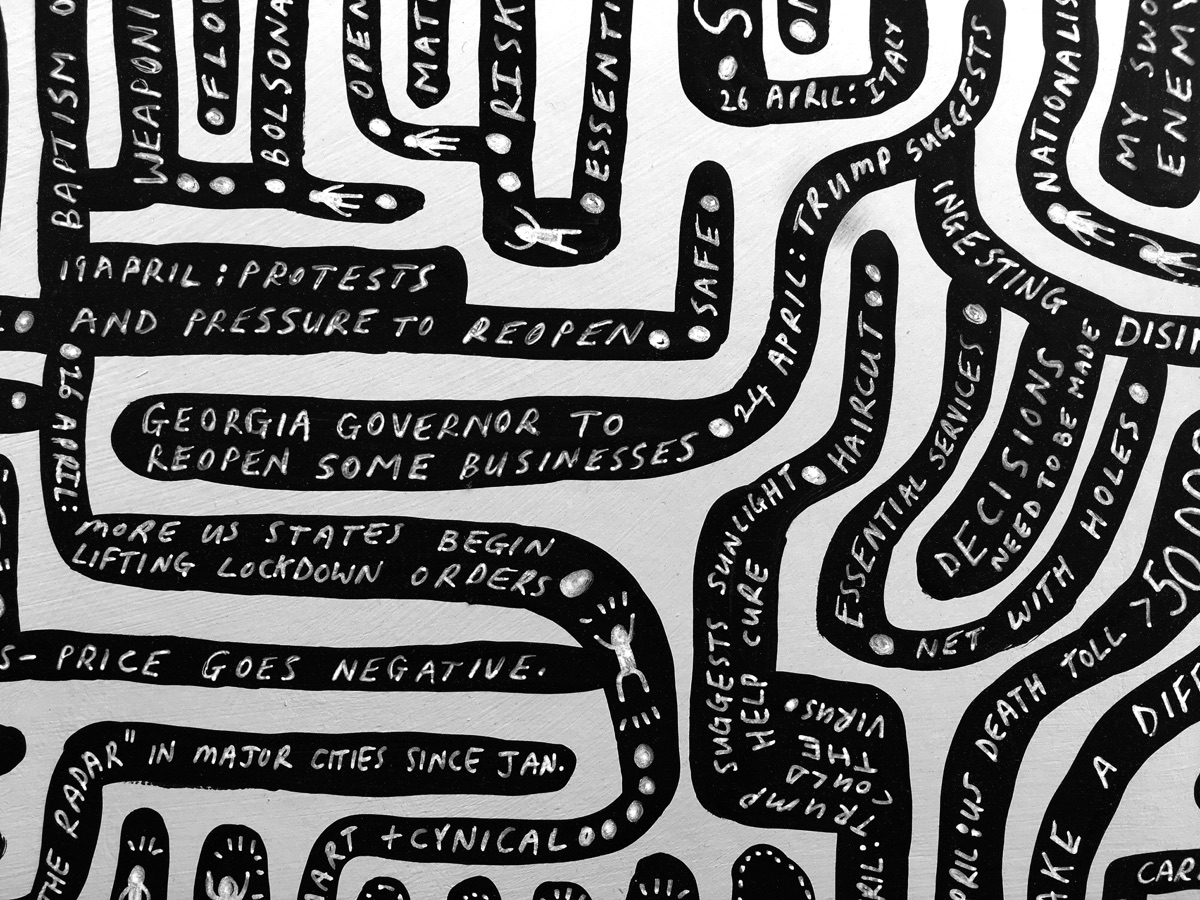 BAPTISM O
WEAPONI
FLOW
BOLSONA
OPEN
MAT
RISK
ESSENTI
26 APRIL: ITALY
24 APRIL: TRUMP SUGGESTS
INGESTING
DISIN
NATIONALIS
MY SWO
ENEMY
19 APRIL: PROTESTS
AND PRESSURE TO REOPEN
SAFE
GEORGIA GOVERNOR TO
REOPEN SOME BUSINESSES
26 APRIL:
MORE US STATES BEGIN
LIFTING LOCKDOWN ORDERS
HAIRCUT
ESSENTIAL SERVICES
DECISIONS
NEED TO BE MADE
NET WITH HOLES
S- PRICE GOES NEGATIVE.
THE RADAR" IN MAJOR CITIES SINCE JAN.
ART + CYNICAL
RIL: TRUMP
COULD
THE
VIRUS
SUGGESTS SUNLIGHT
HELP CURE
PRIL: US DEATH TOLL >50,00
AKE A DIFF
CAR